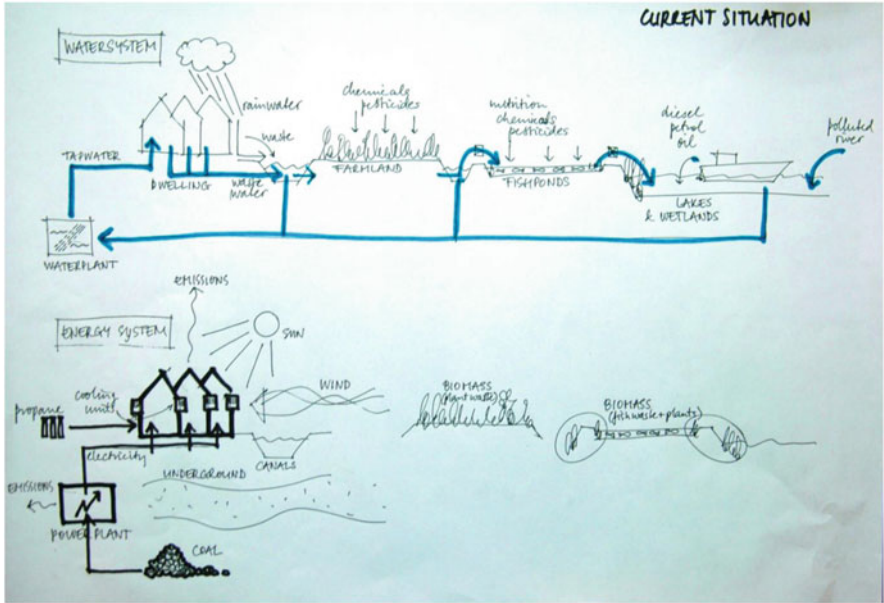 CURRENT SITUATION
WATERSYSTEM
rainwater
waste
chemicals
pesticides
nutrition
chemicals
pesticides
diesel
petrol
oil
polluted
river
TAPWATER
DWELLING
waste
water
FARMLAND
FISHPONDS
LAKES
& WETLANDS
WATERPLANT
EMISSIONS
ENERGY SYSTEM
SUN
WIND
cooling
units
propane
electricity
CANALS
BIOMASS
(plant waste)
BIOMASS
(fishwaste+plants)
UNDERGROUND
EMISSIONS
POWERPLANT
COAL